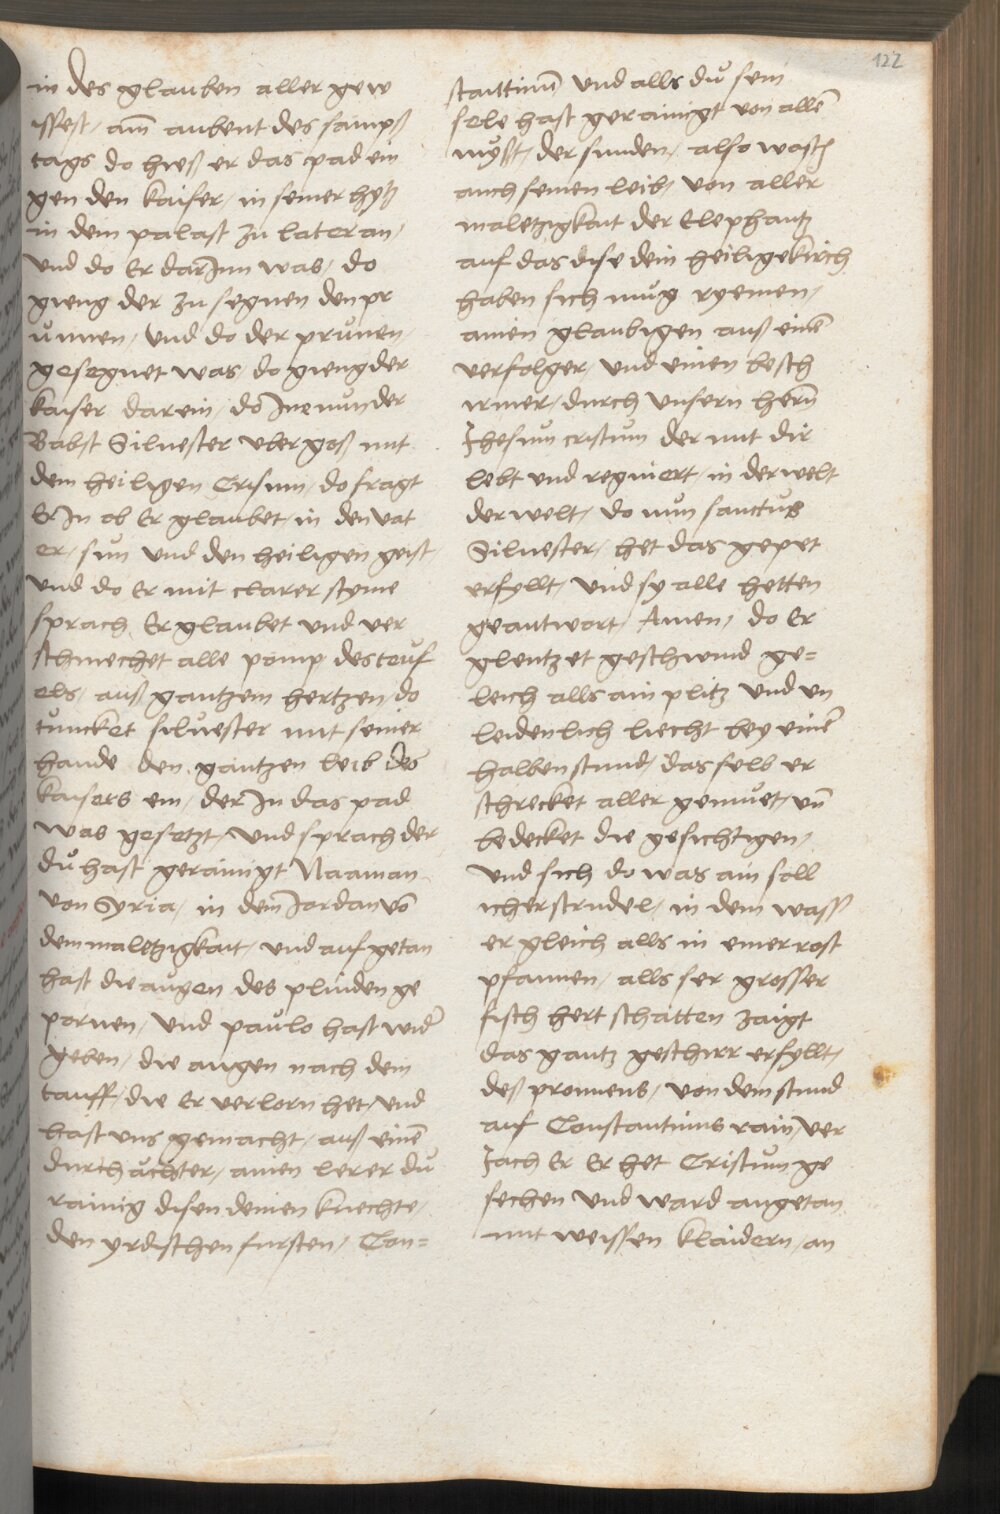 122
in des glauben aller gew
issest / am̄ aubent des sampß
tags do hieß er das pad ein
gen den kaiser / in seiner hytz
in dem palast zu lateran /
vnd do Er darJnn was / do
gieng der zu segnen den pr
ŭnnen / vnd do der prŭnen
gesegnet was do gieng der
kaiser darein / do Jne nŭn der
Babst Siluester vber goß mit
dem heiligen Crisum / do fragt
Er Jn ob Er glaubet / in den vat
er / sŭn vnd den heiligen geist
vnd do Er mit clarer styme
sprach Er glaubet vnd ver
schmechet alle pomp des teuf
els / auß gantzem hertzen / do
tŭncket silŭester mit seiner
hande den gantzen leib des
kaisers ein / der Jn das pad
was gesetzt / vnd sprach der
dŭ hast gerainigt Naaman
von Syria / in dem Jordan vō
dem maletzigkait / vnd auf getan
hast die aŭgen des plinden ge
pornen / vnd paŭlo hast wid̄
geben / die augen nach dem
tauff / die Er verlorn het / vnd
hast vns gemacht / auß einē
durchächter / ainen lerer dŭ
rainig disen deinen knechte /
den yrdischen fursten / Con=
stanttinū vnd alls dŭ sein
sele hast gerainigt von allē
myst / der sunden / also wasch
auch seinen leib / von aller
maletzigkait der Elephantz
auf das dise dein heilige kirch
haben sich mŭg ryemen /
ainen glaubigen auß einē
verfolger / vnd einen besch
irmer / durch vnsern herrn̄
Jhesum cristum der mit dir
lebt vnd regniert / in der welt
der welt / do nŭn sanctŭs
Siluester / het das gepet
erfyllt / vnd sy alle hetten
geantwort Amen / do Er
glentzet geschwind ge=
leich alls ain plitz vnd vn
leidenlich liecht bey einer
halben stund / das selb er
schrecket aller gemuet / vn̄
bedecket die gesichtigen /
vnd sich do was ain soll
icher strudel / in dem wass
er gleich alls in einer rost
pfannen / alls ser grosser
fisch hert schatten zaigt
das gantz geschirr erfyllt /
deß pronnens / von dem stund
auf Constantinus rain / ver
Jach Er Er het Cristŭm ge
sechen vnd ward angetan
mit weissen klaidern / an